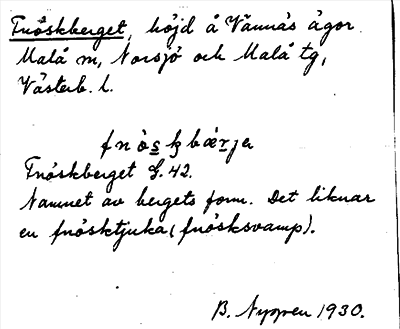 Fnöskberget, höjd å Vännäs ägor
Malå m, Norsjö och Malå tg,
Västerb. l.
fnöskbärje
Fnöskberget G.42.
Namnet av bergets form. Det liknar
en fnösktjuka (fnösksvamp).
B. Nygren 1930.